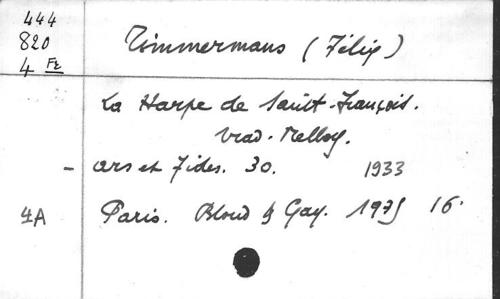 444
820
4 Fz
Timmermans (Félix)
La Harpe de Saint-François.
trad. Melloy.
- Ars et Fides. 30. 1933
4A Paris. Bloud & Gay. 1975 16.